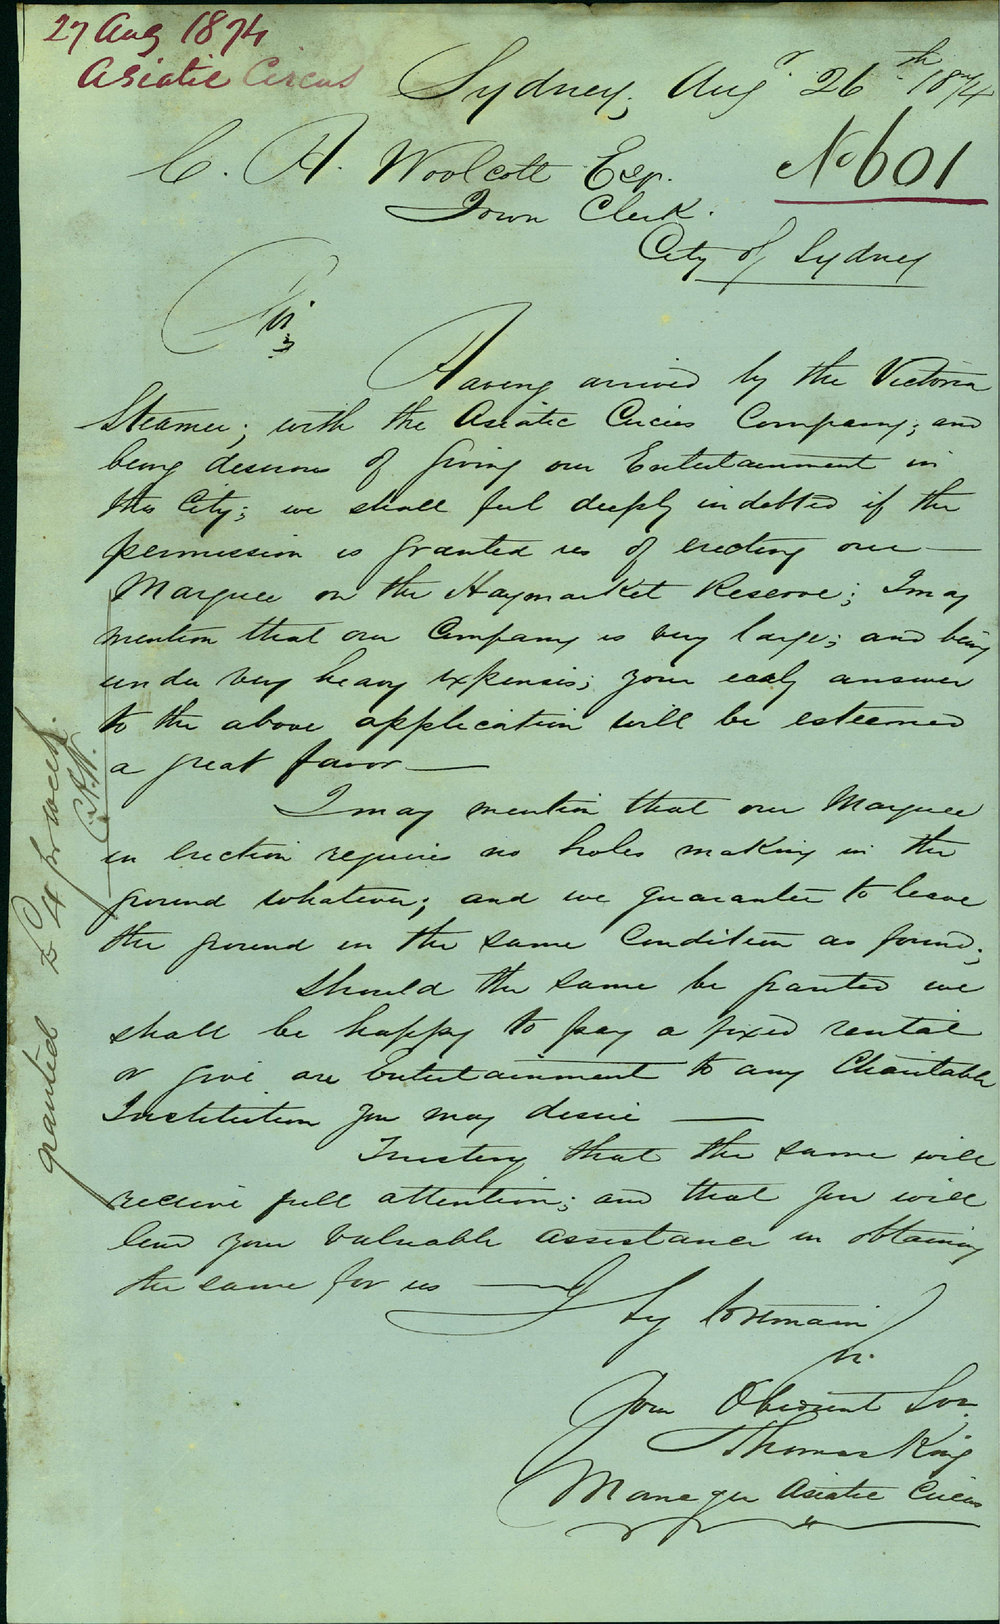 27 Aug 1874
Asiatic Circus
Sydney, Augr 26th 1874
No 601
C. H. Woolcott Esqr.
Town Clerk.
City of Sydney
Sir,
Having arrived by the Victoria
Steamer; with the Asiatic Circus Company; and
being desirous of giving our Entertainment in
this City; we shall feel deeply indebted if the
permission is granted us of erecting our —
Marquee on the Haymarket Reserve; I may
mention that our Company is very large; and being
under very heavy expenses; your early answer
to the above application will be esteemed
a great favor —
I may mention that our Marquee
in erection requires no holes making in the
ground whatever; and we guarantee to leave
the ground in the same Condition as found;
Should the same be granted we
shall be happy to pay a fixed rental
or give an Entertainment to any Charitable
Institution you may desire —
Trusting that the same will
receive full attention; and that you will
lend your valuable assistance in obtaining
the same for us —
I beg to remain
Sir.
Your Obedient Ser
Thomas King
Manager Asiatic Circus
granted £4 pr week.
C.H.W.